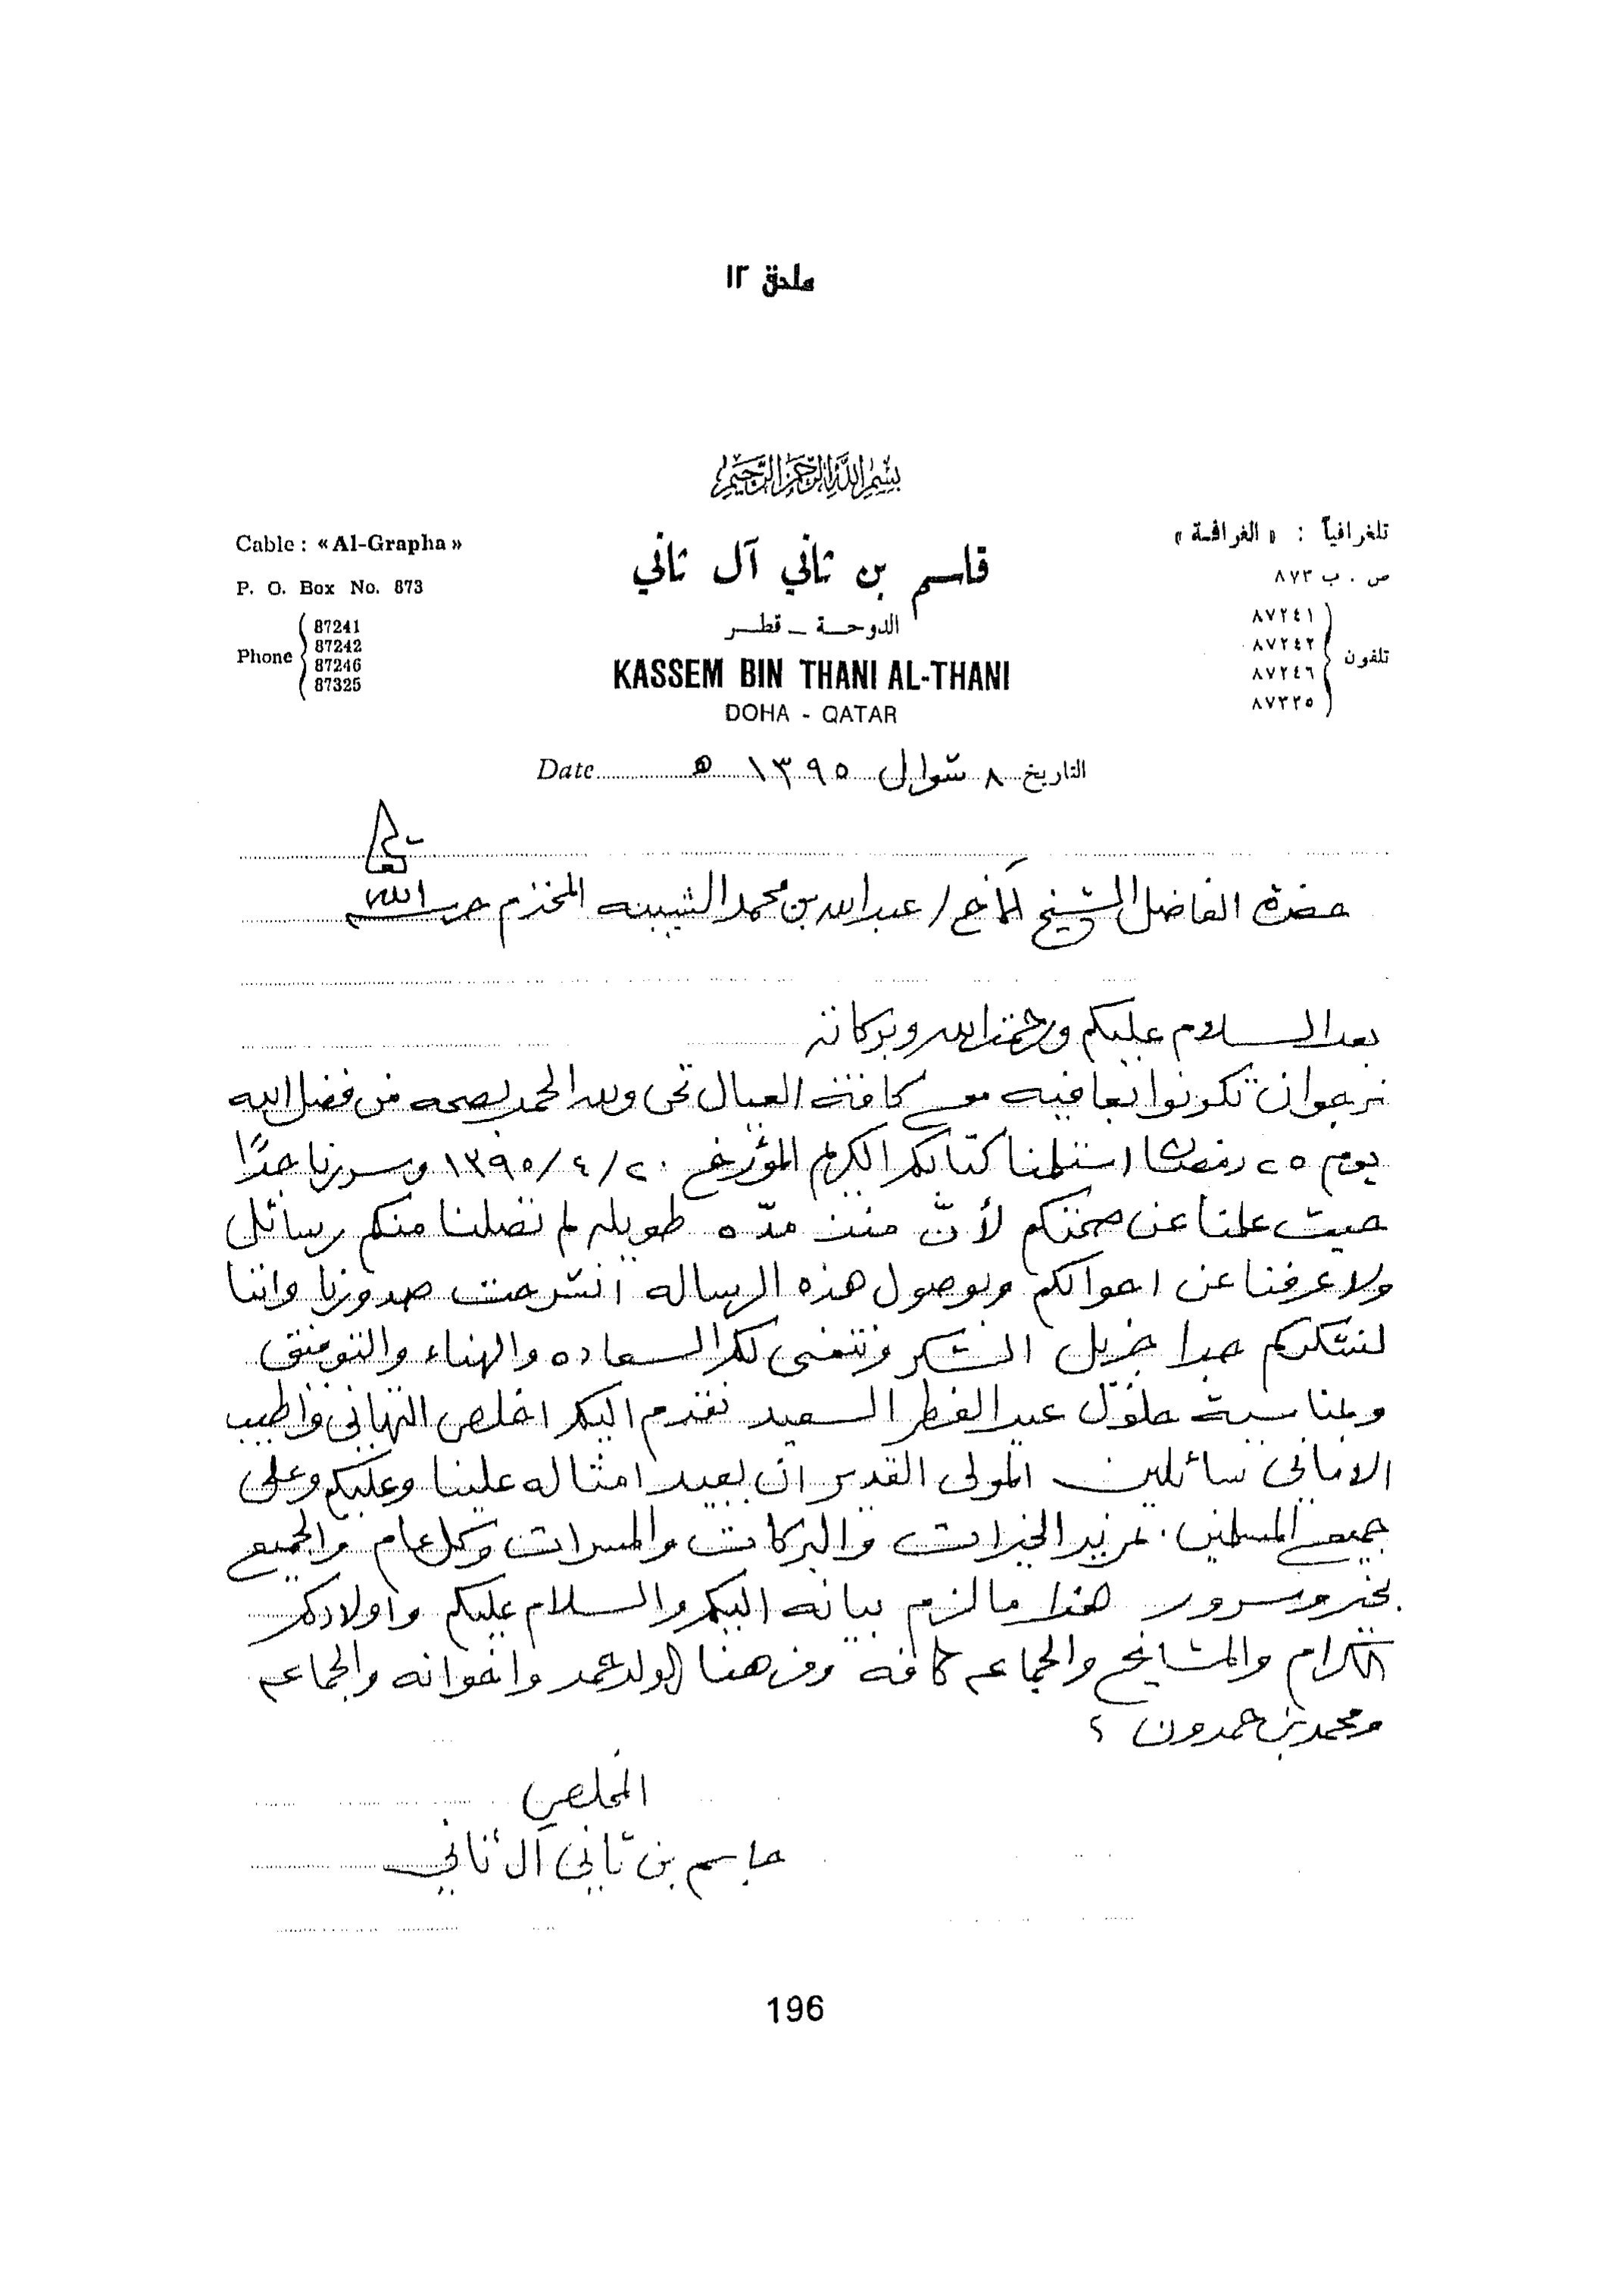 ملحق ١٢
بسم الله الرحمن الرحيم
Cable : « Al-Grapha »
P. O. Box No. 873
Phone
87241
87242
87246
87325
قاسم بن ثاني آل ثاني
الدوحة - قطر
KASSEM BIN THANI AL-THANI
DOHA - QATAR
تلغرافياً : « الغرافة »
ص . ب ٨٧٣
تلفون
٨٧٢٤١
٨٧٢٤٢
٨٧٢٤٦
٨٧٣٢٥
التاريخ ٨ شوال ١٣٩٥ ه Date
حضرة الفاضل الشيخ الأخ / عبدالله بن محمد الشيبه المحترم حرسه الله
بعد السلام عليكم ورحمة الله وبركاته
نرجوا ان تكونوا بعافيه مع كافة العيال نحن ولله الحمد بصحه من فضل الله
يوم ٢٥ رمضان استلمنا كتابكم الكريم المؤرخ ٢٠/٤/١٣٩٥ وسررنا جدًا
حيث علمنا عن صحتكم لأنّ منذ مدّه طويله لم تصلنا منكم رسائل
ولا عرفنا عن احوالكم وبوصول هذه الرساله انشرحت صدورنا واننا
لنشكركم جدا جزيل الشكر ونتمنى لكم السعاده والهناء والتوفيق
وبمناسبة حلول عيد الفطر السعيد نقدم اليكم اخلص التهاني واطيب
الاماني سائلين المولى القدير ان يعيد امثاله علينا وعليكم وعلى
جميع المسلمين بمزيد الخيرات والبركات والمسرات وكل عام والجميع
بخير وسرور هذا ما لزم بيانه اليكم والسلام عليكم واولادكم
الكرام والمشايخ والجماعه كافه ومن هنا الولد حمد واخوانه والجماعه
ومحمد بن حمدون ؟
المخلص
جاسم بن ثاني آل ثاني
196